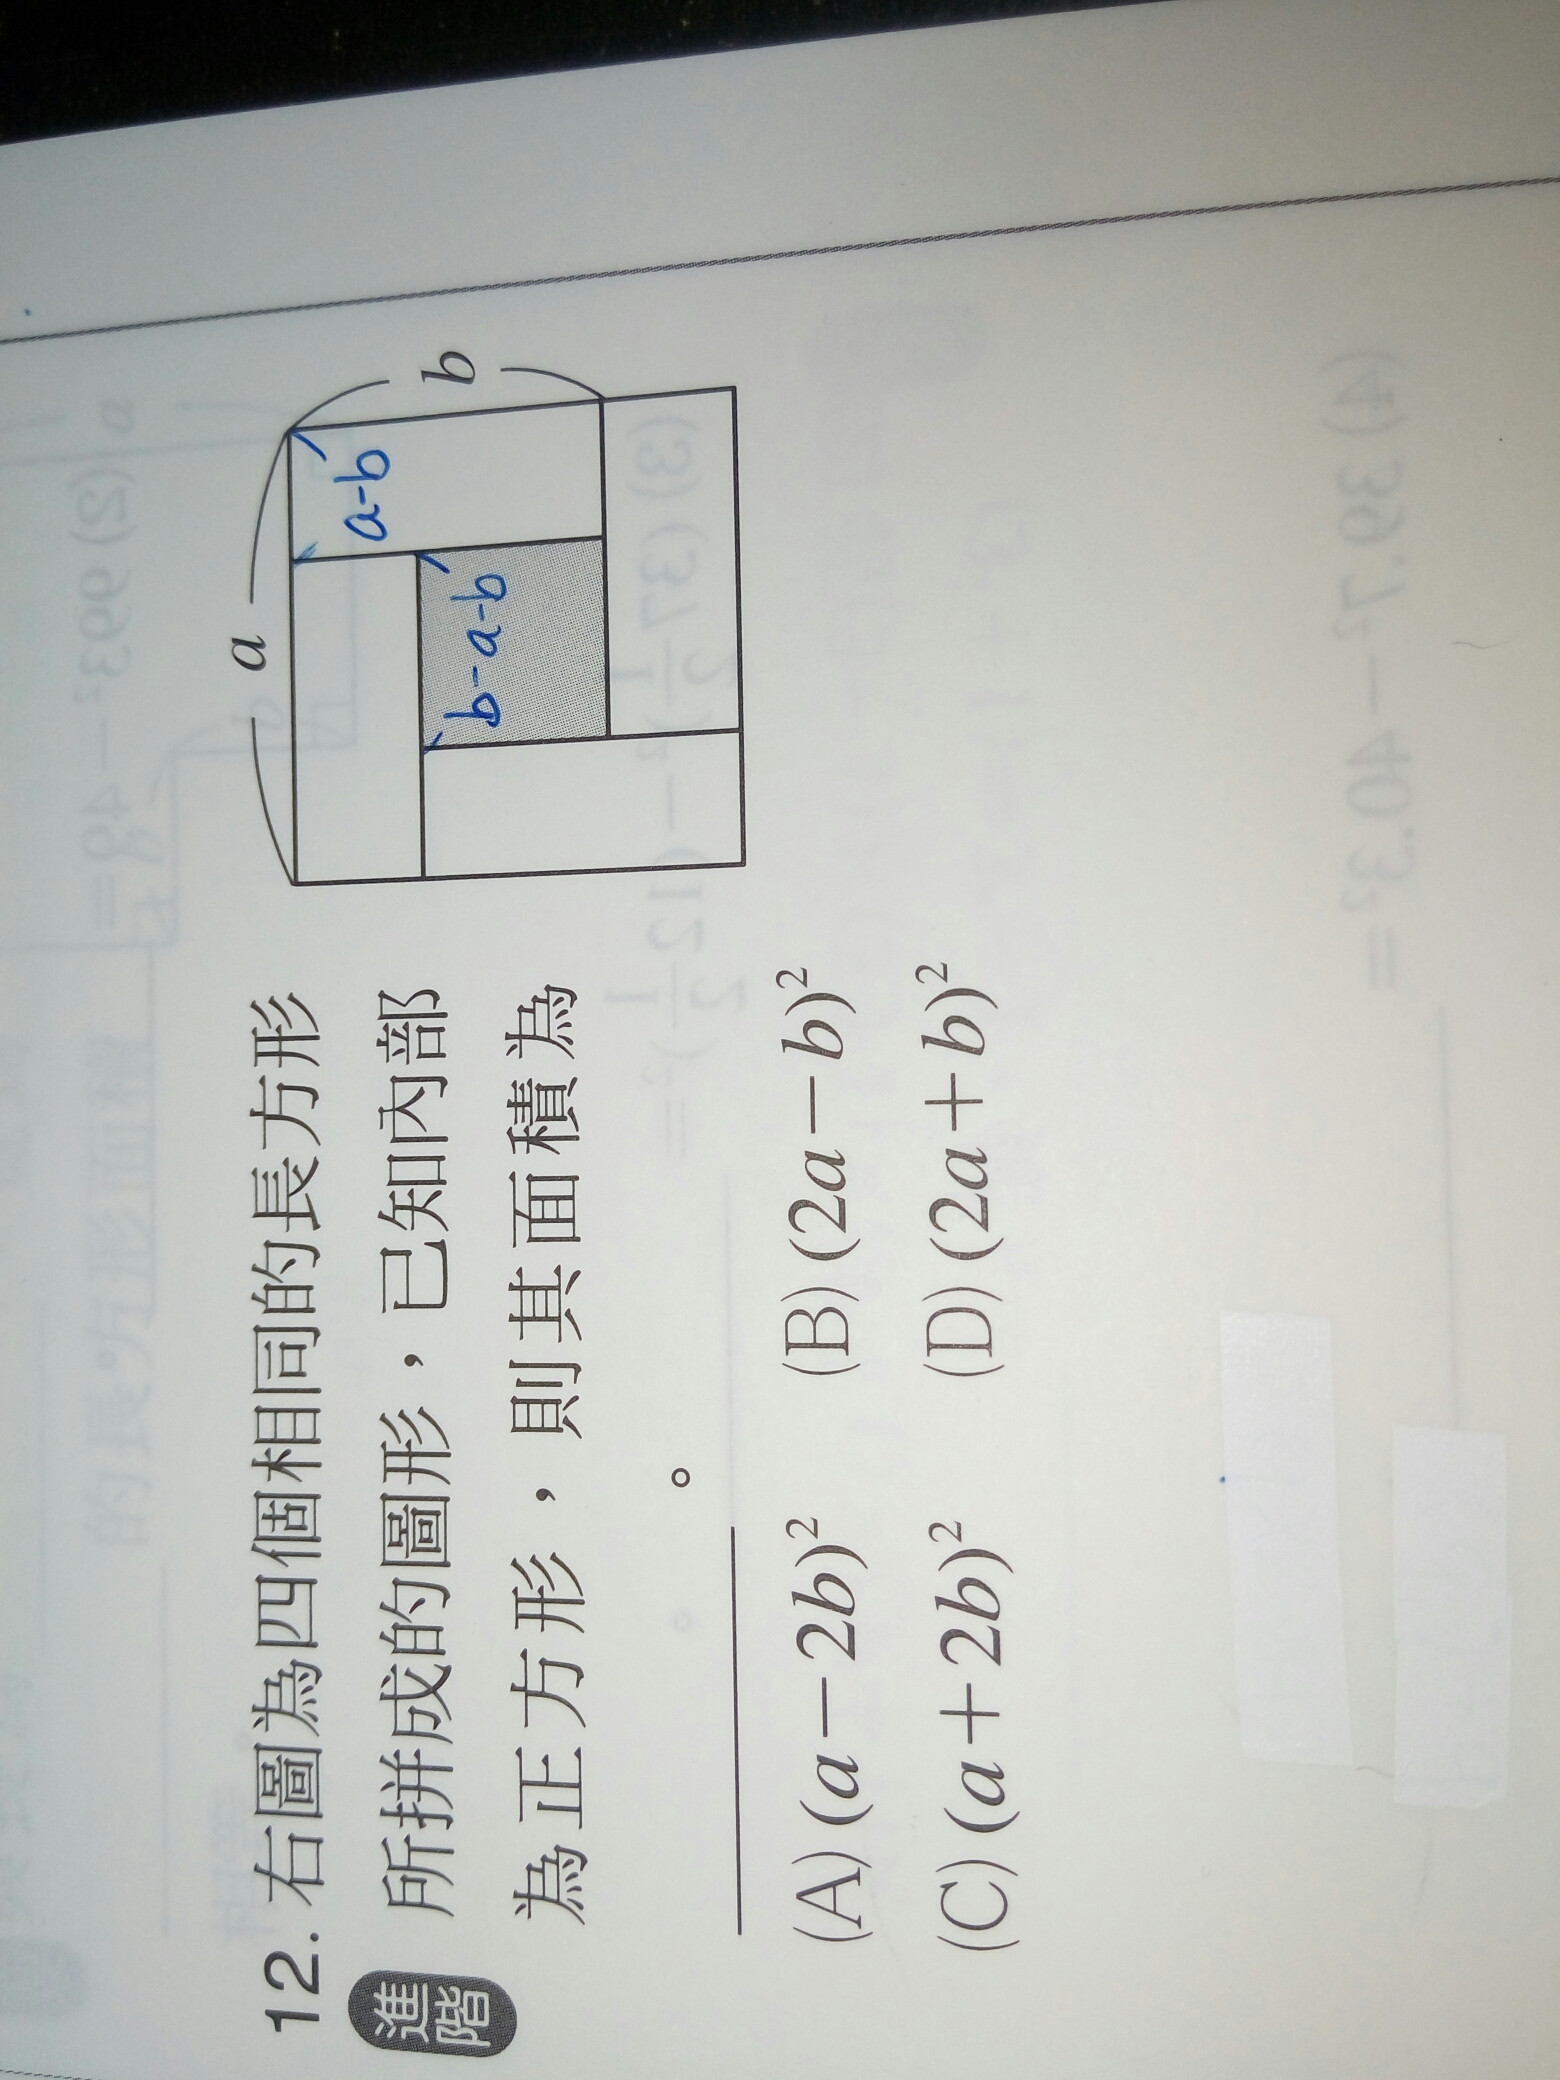 12. 右圖為四個相同的長方形
進階
所拼成的圖形，已知內部
為正方形，則其面積為
______。
(A) (a－2b)² (B) (2a－b)²
(C) (a＋2b)² (D) (2a＋b)²
a
b
a-b
b-a-b
(2) 993²－49
(4) 39.7²－40.3²＝